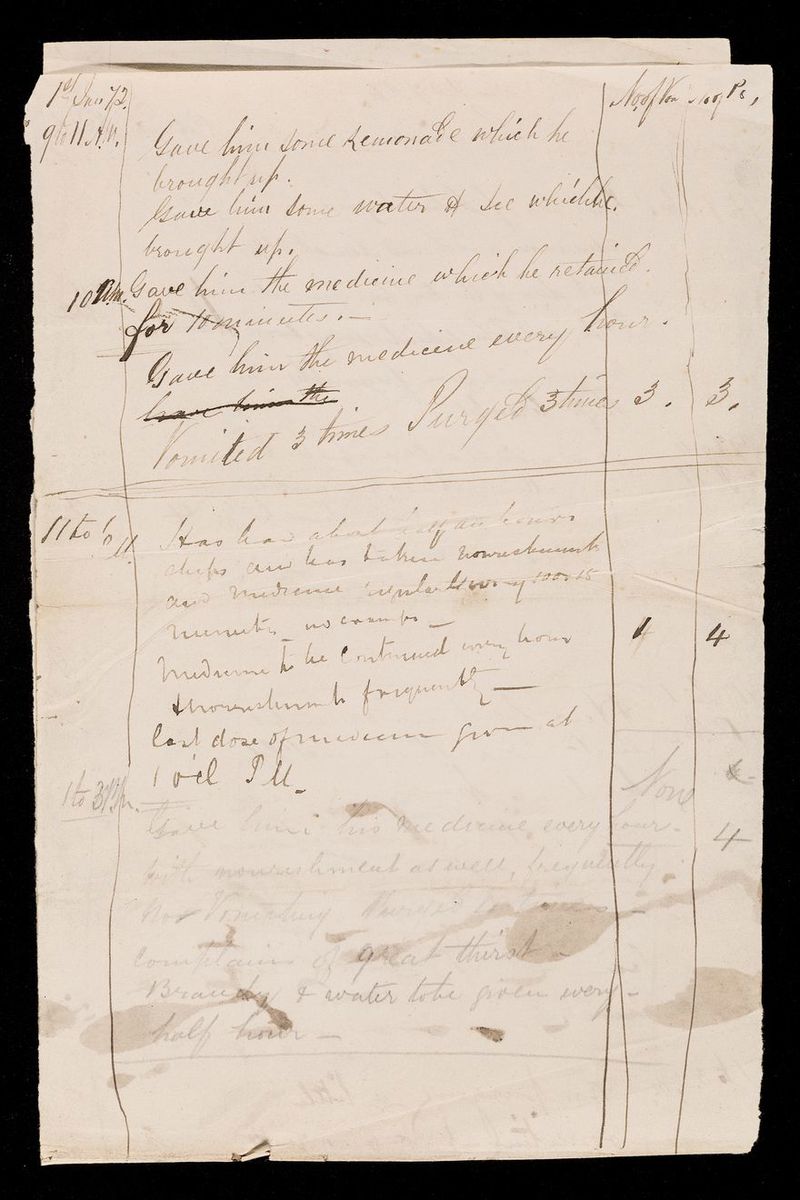 1st Jan 72. No of Vo No of Ps,
9 to 11 A.M. Gave him some Lemonade which he
brought up.
Gave him some water & Ice which he
brought up.
10 A.M. Gave him the medicine which he retained
for 10 minutes. —
Gave him the medicine every hour.
Gave him the
Vomited 3 times Purged 3 times 3. 3.
11 to Has had about half an hours
sleep and has taken nourishment
and medicine regularly every 10 or 15
minutes no cramps — 4 4
Medicine to be Continued every hour
& nourishment frequently —
last dose of medicine given at
1 o'cl P.M.
1 to 3 P.M. None
Gave him his medicine every hour. 4
with nourishment as well, frequently.
Vomiting Purged times —
complains of great thirst —
Brandy & water to be given every
half hour —